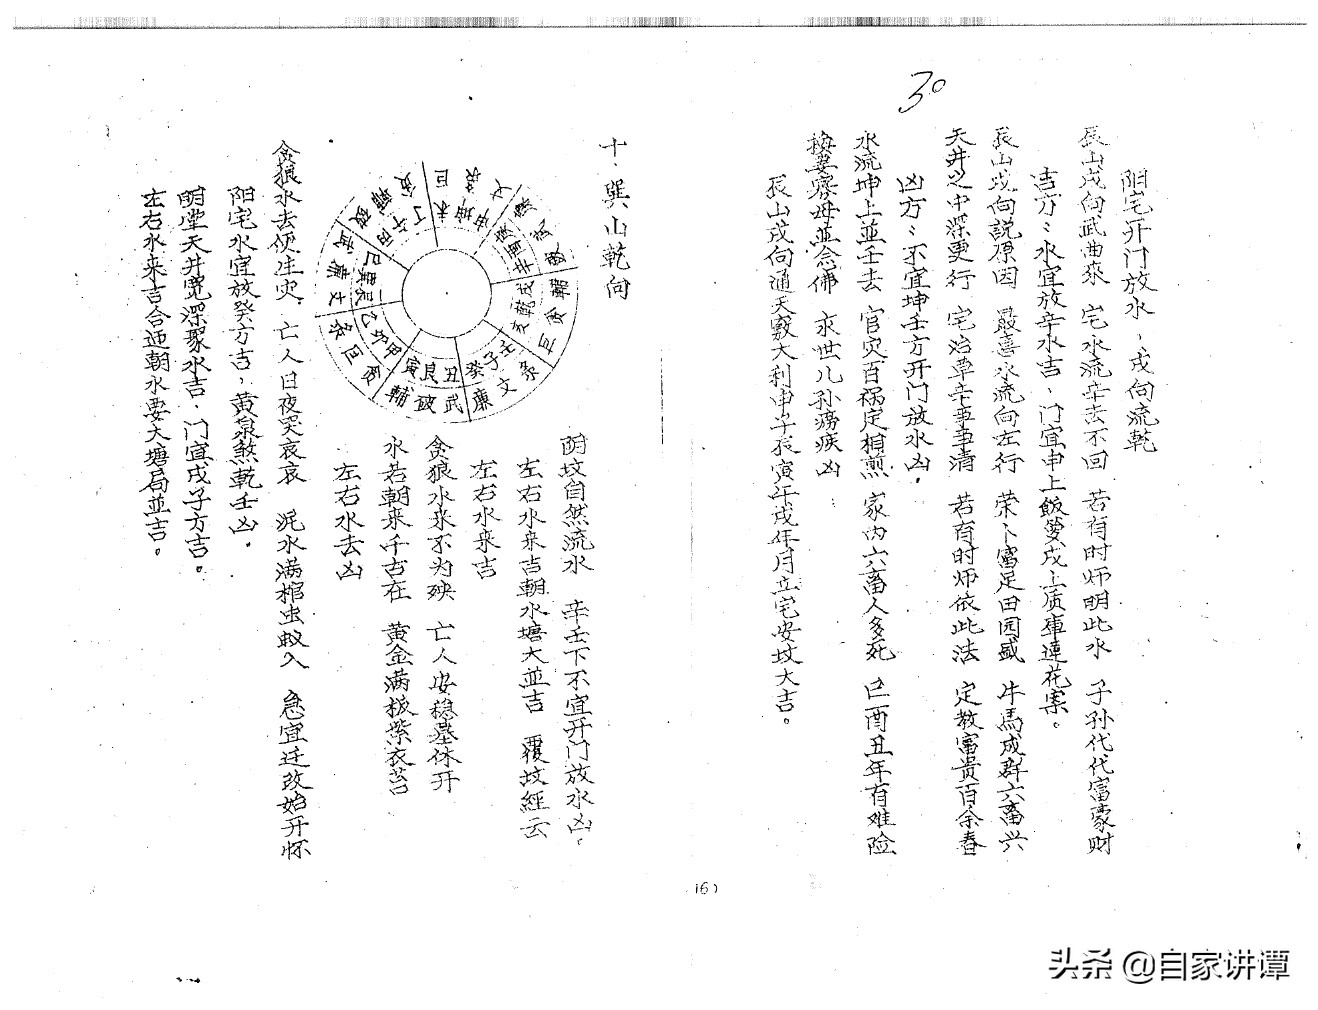 30
阳宅开门放水，戌向流乾
辰山戌向武曲来 宅水流辛去不回 若有时师明此水 子孙代代富豪财
吉方：水宜放辛水吉，门宜申上饭箩戌上质庫連花案。
辰山戌向説原因 最喜水流向左行 荣卜富足田园盛 牛馬成群六畜兴
天井之中深更行 宅冶草辛事事清 若有时师依此法 定教富贵百余春
凶方：不宜坤壬方开门放水凶。
水流坤上並壬去 官灾百祸定相煎 家内六畜人多死 巳酉丑年有难险
換妻寡母並念佛 求世儿孙痨疾凶
辰山戌向通天竅大利申子辰寅午戌年月立宅安坟大吉。
十．巽山乾向
阴坟自然流水 辛壬下不宜开门放水凶。
左右水来吉朝水塘大並吉 覆坟經云
左右水来吉
贪狼水来不为殃 亡人安稳墓休开
水若朝来千古在 黄金满板紫衣
左右水去凶
贪狼水去便生灾．亡人日夜哭哀哀 泥水满棺虫蚁入 急宜迁改始开怀
阳宅水宜放癸方吉，黄泉煞乾壬凶．
明堂天井宽深聚水吉．门宜戌子方吉。
左右水来吉合迎朝水要大塘局並吉。
壬子癸
丑艮寅
甲卯乙
辰巽巳
丙午丁
未坤申
庚酉辛
戌乾亥
武破輔
廉文
16)
头条 @自家讲谭